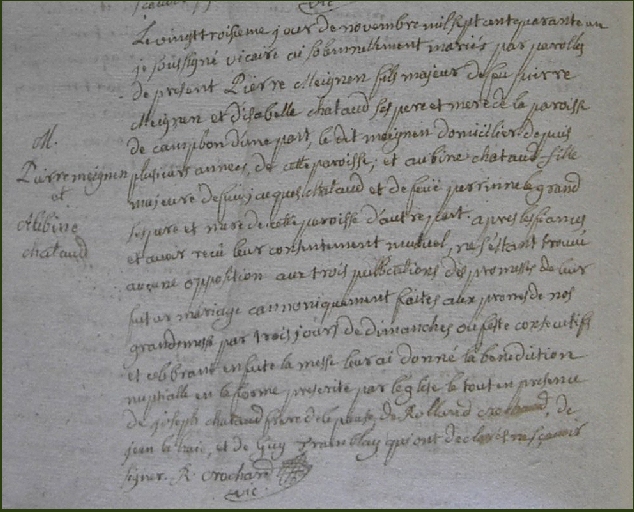 Le vingt troisieme jour de novembre mil sept cent quarante un
je soussigné vicaire ai solennellement mariés par parolles
de present Pierre Meignen fils majeur de feu pierre
Meignen et d'isabelle chataud ses pere et mere de la paroisse
de campbon d'une part, le dit meignen domicilier depuis
plusieurs années, de cette paroisse, et aubine chataud fille
M.
Pierre meignen
et
Aubine
chataud
majeure de feu jacques chataud et de feuë perrinne le grand
ses pere et mere de cette paroisse d'autre part. apres les fiances
et avoir recu leur consentement mutuel, ne s'étant trouvé
aucune opposition aux trois publications des promesses de leur
futur mariage cannoniquement faites aux prones de nos
grandmesses par trois jours de dimanches ou feste consecutifs
et celebrant ensuite la messe leur ai donné la benediction
nuptialle en la forme prescrite par l'eglise le tout en presence
de joseph chataud frere de l'epouse, de Rolland crochard, de
jean et de Guy qui ont declaré ne sçavoir
signer. R. crochard
vic.